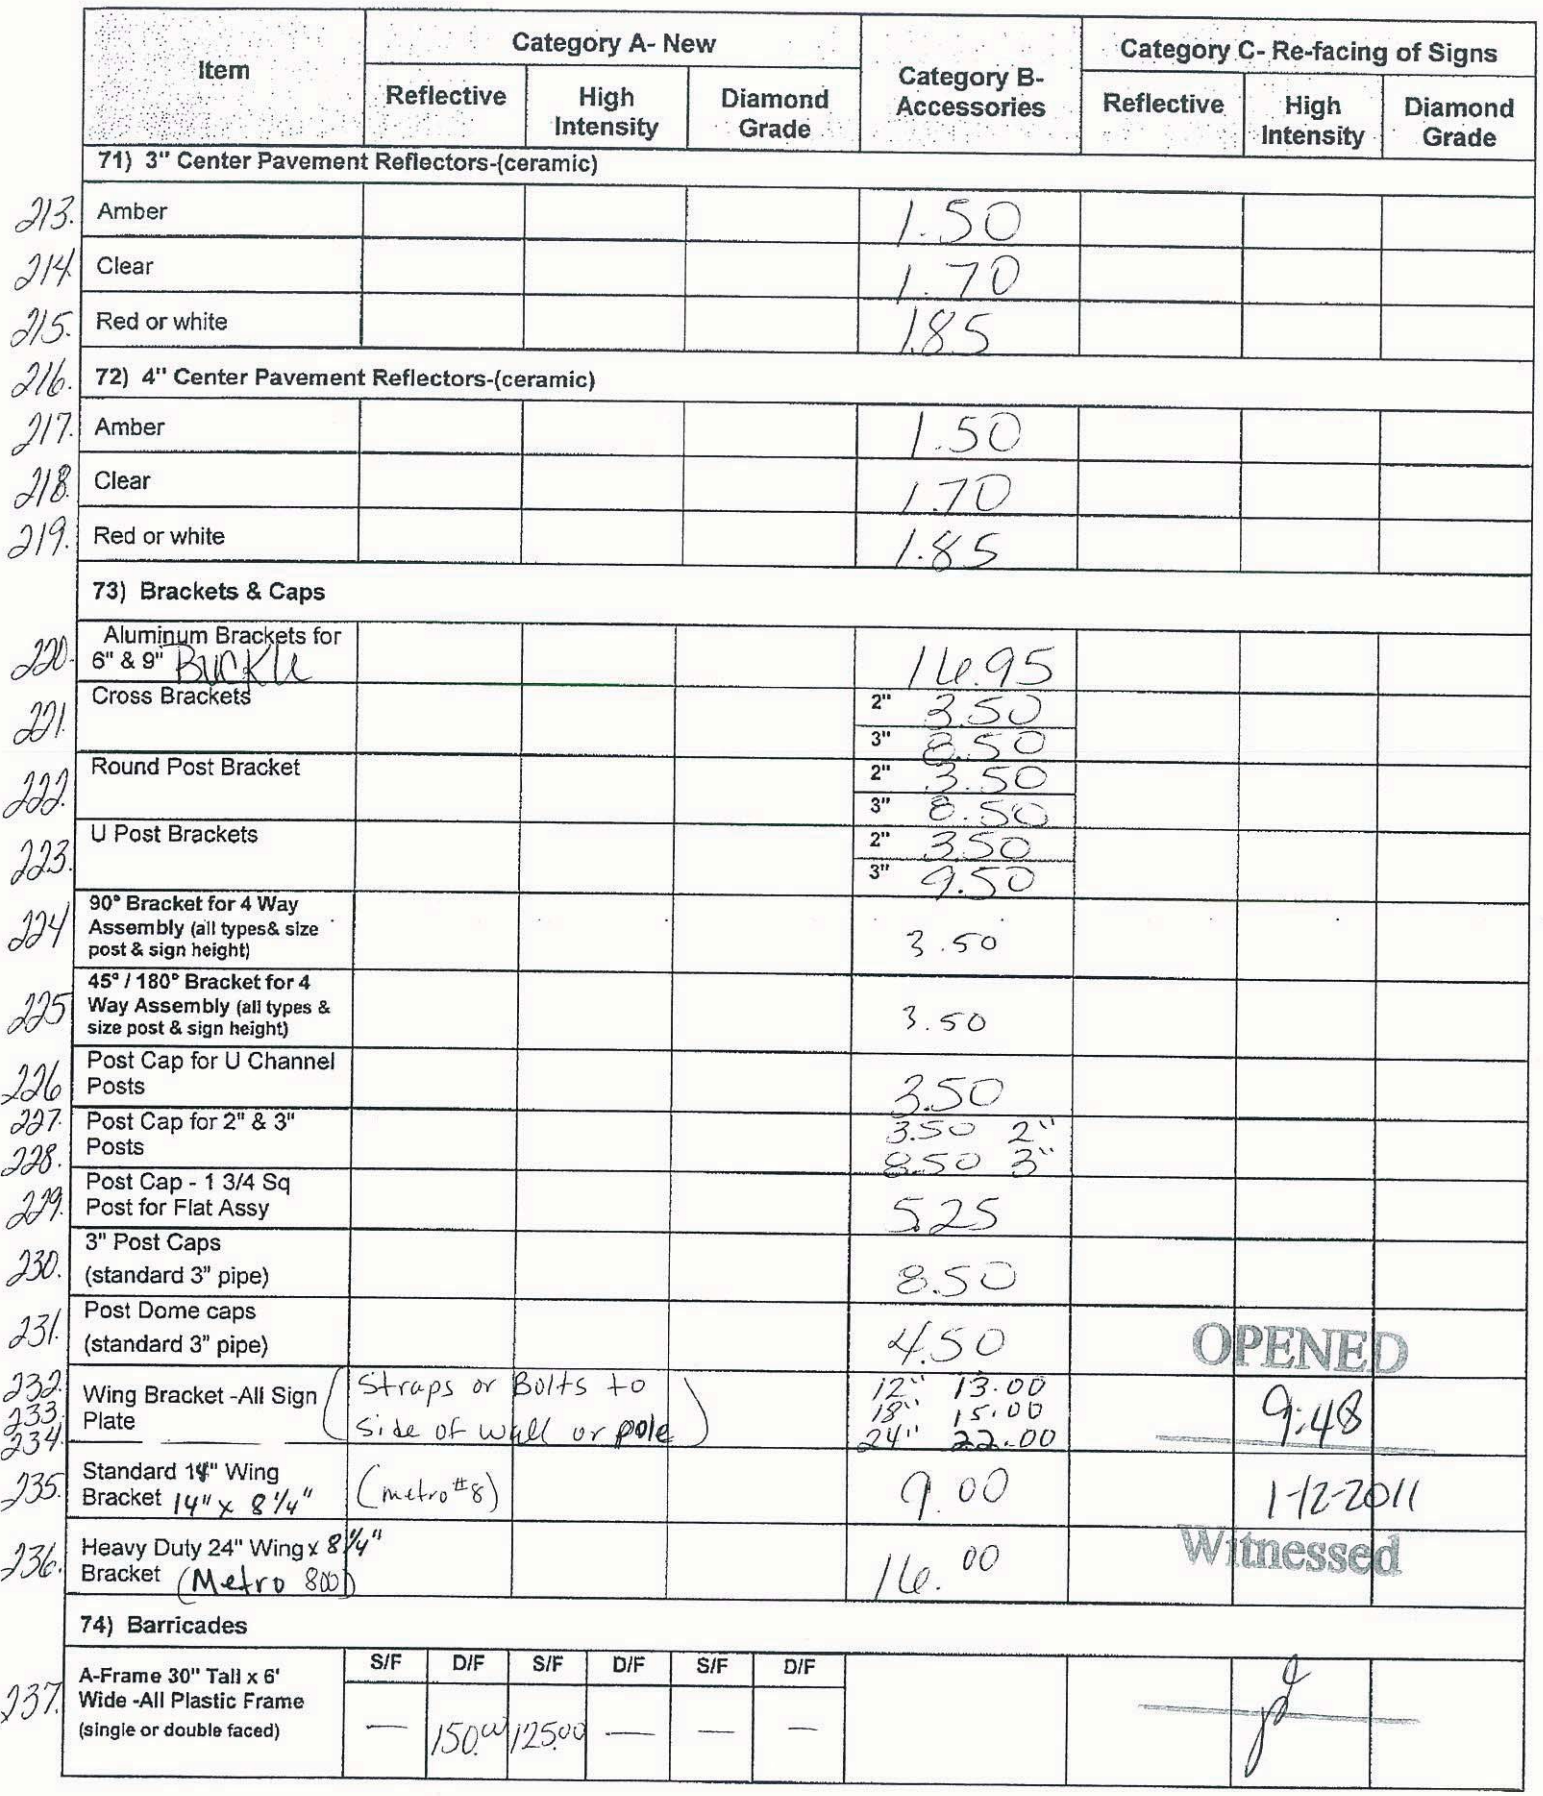 Item
Category A- New
Category B-
Accessories
Category C- Re-facing of Signs
Reflective
High
Intensity
Diamond
Grade
Reflective
High
Intensity
Diamond
Grade
71) 3" Center Pavement Reflectors-(ceramic)
213. Amber 1.50
214 Clear 1.70
215. Red or white 1.85
216. 72) 4" Center Pavement Reflectors-(ceramic)
217. Amber 1.50
218. Clear 1.70
219. Red or white 1.85
73) Brackets & Caps
220. Aluminum Brackets for
6" & 9" Buckle 16.95
221. Cross Brackets 2" 3.50
3" 8.50
222. Round Post Bracket 2" 3.50
3" 8.50
223. U Post Brackets 2" 3.50
3" 9.50
224 90° Bracket for 4 Way
Assembly (all types& size
post & sign height) 3.50
225 45° / 180° Bracket for 4
Way Assembly (all types &
size post & sign height) 3.50
226 Post Cap for U Channel
Posts 3.50
227. Post Cap for 2" & 3" 3.50 2"
228. Posts 8.50 3"
229. Post Cap - 1 3/4 Sq
Post for Flat Assy 5.25
230. 3" Post Caps
(standard 3" pipe) 8.50
231. Post Dome caps
(standard 3" pipe) 4.50
OPENED
232. Wing Bracket -All Sign (Straps or Bolts to 12" 13.00
233. Plate side of wall or pole) 18" 15.00
234. 24" 22.00
9:48
235. Standard 14" Wing
Bracket 14" x 8 1/4" (metro #8) 9.00
1-12-2011
236. Heavy Duty 24" Wing x 8 1/4"
Bracket (Metro 800) 16.00
Witnessed
74) Barricades
S/F D/F S/F D/F S/F D/F
237. A-Frame 30" Tall x 6'
Wide -All Plastic Frame
(single or double faced) — 150.00 125.00 — — —